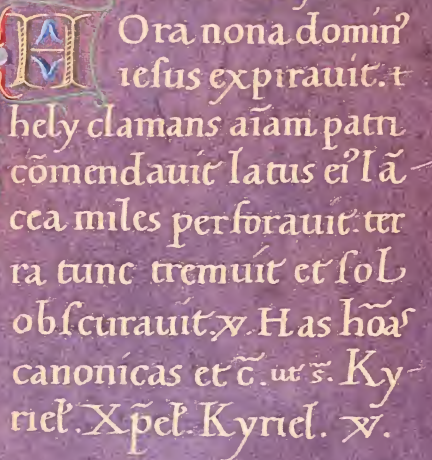 HOra nona dominꝰ
iesus expirauit. et
hely clamans aīam patri
cōmendauit latus eiꝰ lā-
cea miles perforauit: ter
ra tunc tremuit et sol
obscurauit. ℣. Has hōas
canonicas et c̄. ut s̄. Ky-
riel̄. Xp̄el̄. Kyriel. ℣.